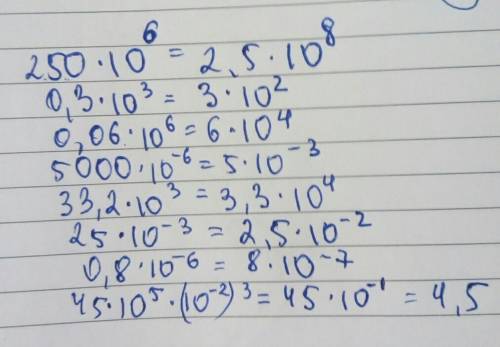 250·10⁶ = 2,5·10⁸
0,3·10³ = 3·10²
0,06·10⁶ = 6·10⁴
5000·10⁻⁶ = 5·10⁻³
33,2·10³ = 3,3·10⁴
25·10⁻³ = 2,5·10⁻²
0,8·10⁻⁶ = 8·10⁻⁷
45·10⁵·(10⁻²)³ = 45·10⁻¹ = 4,5